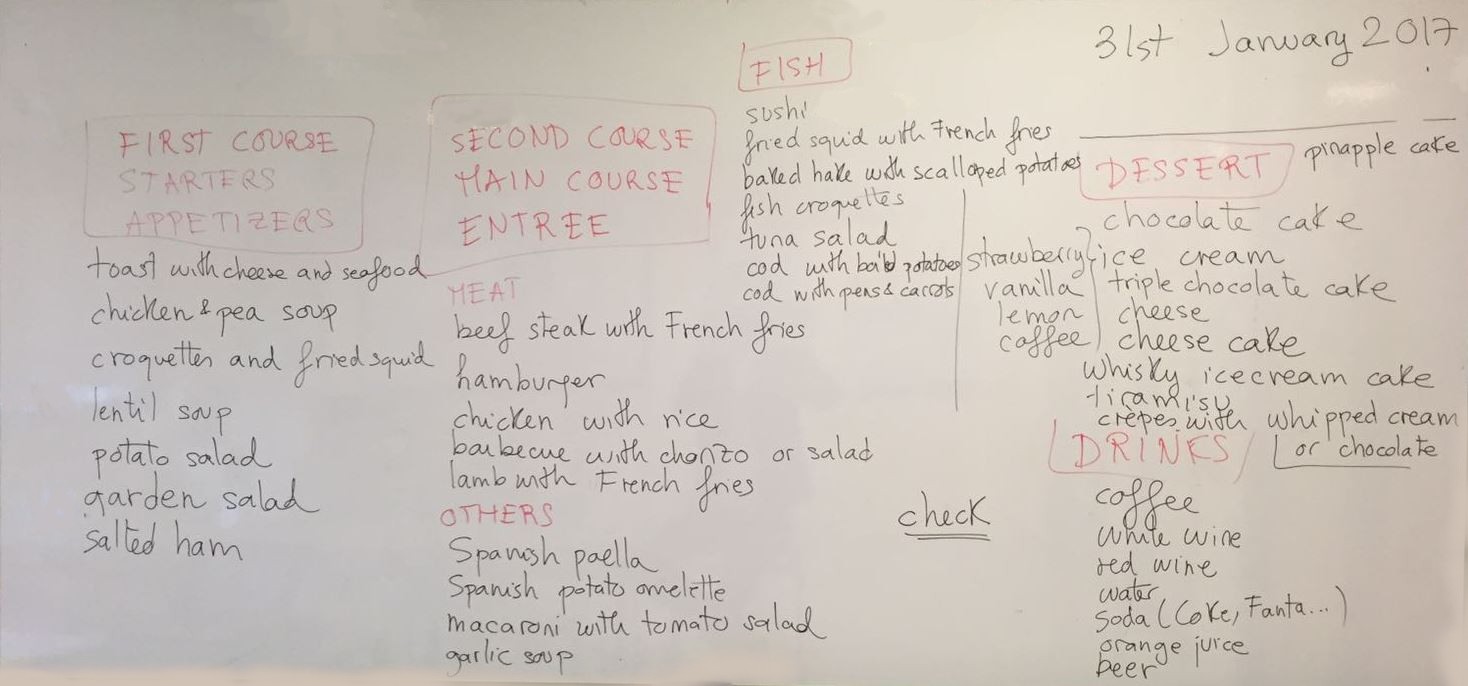 31st January 2017
FIRST COURSE
STARTERS
APPETIZERS
toast with cheese and seafood
chicken & pea soup
croquettes and fried squid
lentil soup
potato salad
garden salad
salted ham
SECOND COURSE
MAIN COURSE
ENTREE
MEAT
beef steak with French fries
hamburger
chicken with rice
barbecue with chorizo or salad
lamb with French fries
OTHERS
Spanish paella
Spanish potato omelette
macaroni with tomato salad
garlic soup
FISH
sushi
fried squid with French fries
baked hake with scalloped potatoes
fish croquettes
tuna salad
cod with potatoes
cod with peas & carrots
check
DESSERT
pinapple cake
chocolate cake
strawberry ice cream
vanilla
lemon
coffee
triple chocolate cake
cheese
cheese cake
whisky icecream cake
tiramisu
crêpes with whipped cream
or chocolate
DRINKS
coffee
white wine
red wine
water
soda (Coke, Fanta...)
orange juice
beer